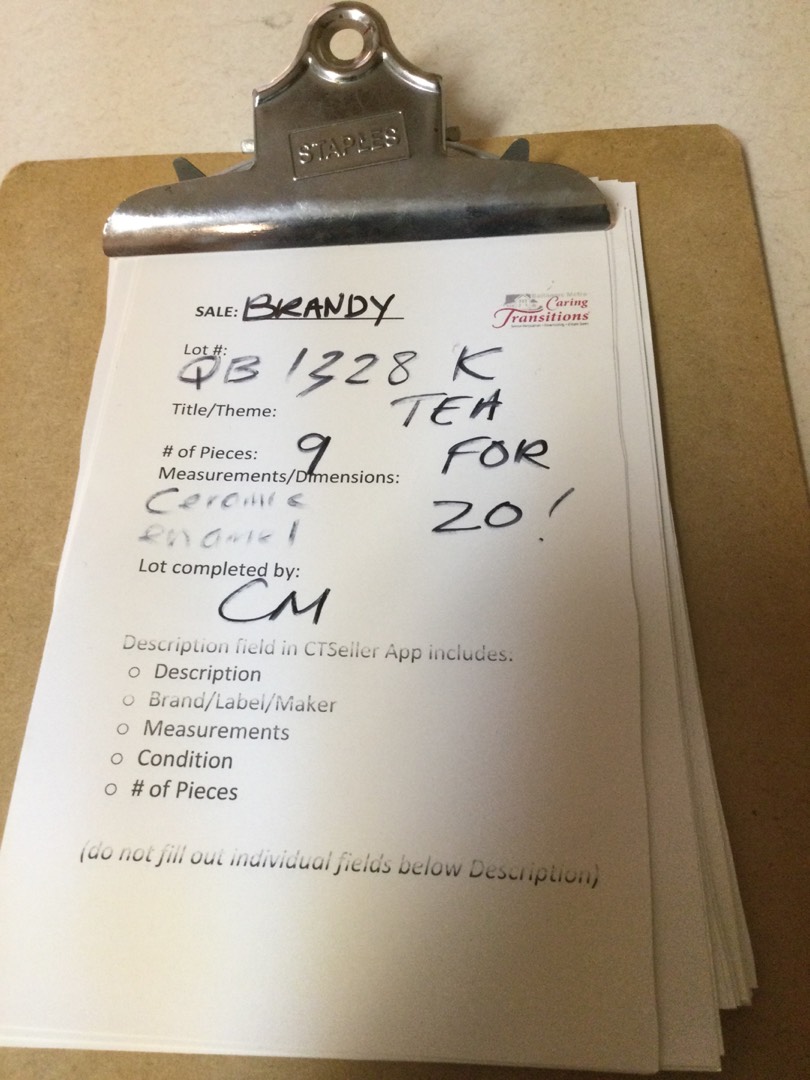 STAPLES
SALE: BRANDY
Caring
Transitions
Lot #:
QB 1328 K
Title/Theme: TEA
# of Pieces: 9 FOR
Measurements/Dimensions:
Ceramic 20!
enamel
Lot completed by:
CM
Description field in CTSeller App includes:
○ Description
○ Brand/Label/Maker
○ Measurements
○ Condition
○ # of Pieces
(do not fill out individual fields below Description)